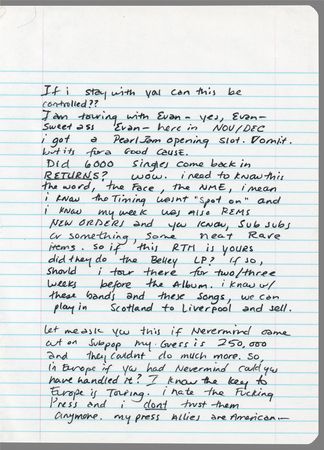 If i stay with you can this be
controlled??
I am touring with Evan - yes, Evan-
Sweet ass Evan - here in NOV/DEC
i got a Pearl Jam opening slot. Vomit.
but its for a Good cause.
Did 6000 singles come back in
RETURNS? wow. i need to know this
the word, the Face, the NME, i mean
i know the Timing wasnt "spot on" and
i know my week was also REMS
NEW ORDERS and you know, Sub subs
or something, some neat Rave
items. so if this RTM is yours
did they do the Belley LP? if so,
should i tour there for two/three
weeks before the Album. i know w/
these bands and these songs, we can
play in Scotland to Liverpool and sell.
Let me ask you this if Nevermind came
out on Subpop my Guess is 250,000
and they couldnt do much more. So,
in Europe if you had Nevermind could you
have handled it? I know the key to
Europe is Touring. i hate the Fucking
Press and i dont trust them
anymore. my press allies are American-